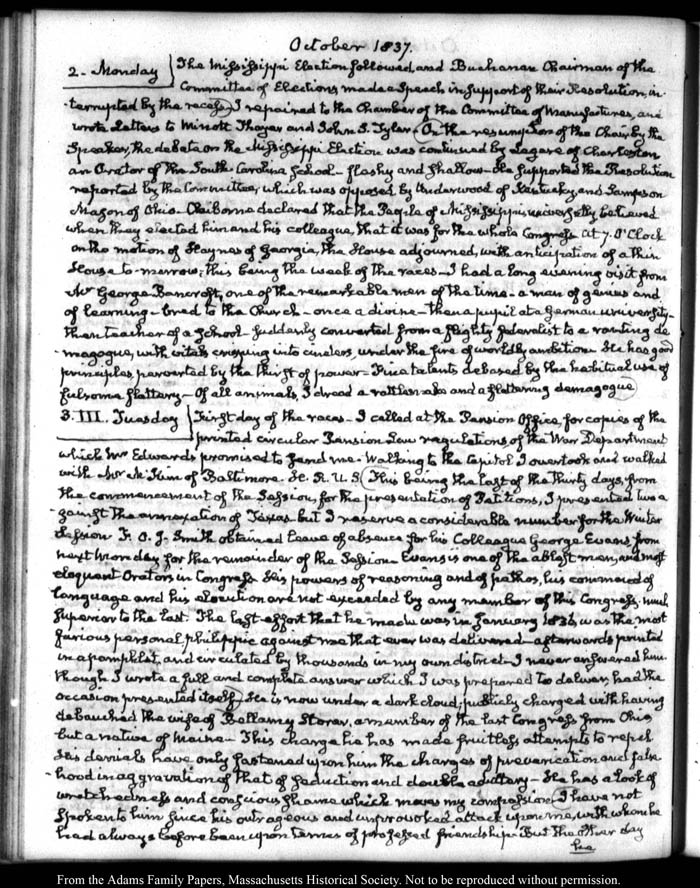 October 1837.
2 - Monday } The Mississippi Election followed, and Buchanan Chairman of the
Committee of Elections made a Speech in support of their Resolution, in-
-terrupted by the recess. I repaired to the Chamber of the Committee of Manufactures, and
wrote Letters to Minott Thayer and John S. Tyler. On the resumption of the Chair by the
Speaker, the debate on the Mississippi Election was continued by Legare of Charleston
an Orator of the South Carolina School - flashy and shallow - He supported the Resolution
reported by the Committee, which was opposed by Underwood of Kentucky, and Sampson
Mason of Ohio - Claiborne declared that the People of Mississippi universally believed
when they elected him and his colleague, that it was for the whole Congress. At 7. O'Clock
on the motion of Haynes of Georgia, the House adjourned, with anticipation of a thin
House to-morrow; this being the week of the races - I had a long evening visit from
Mr George Bancroft, one of the remarkable men of the time - a man of genius and
of learning - bred to the Church - once a divine - then a pupil at a German university -
then teacher of a School - suddenly converted from a flighty federalist to a ranting de-
-magogue, with vitals crisping into cinders under the fire of worldly ambition - He has good
principles perverted by the thirst of power - Fine talents debased by the habitual use of
fulsome flattery - Of all animals, I dread a rattlesnake and a flattering demagogue
3. III. Tuesday } First day of the races - I called at the Pension Office, for copies of the
printed circular Pension Law regulations of the War Department
which Mr Edwards promised to send me. Walking to the Capitol I overtook and walked
with Mr McKim of Baltimore. H. R. U. S. This being the last of the thirty days, from
the commencement of the Session, for the presentation of Petitions, I presented two a-
-gainst the annexation of Texas but I reserve a considerable number for the Winter
Session F. O. J. Smith obtained leave of absence for his Colleague George Evans, from
next Monday for the remainder of the Session - Evans is one of the ablest men, and most
eloquent Orators in Congress. His powers of reasoning and of pathos, his command of
language and his elocution are not exceeded by any member of this Congress - much
superior to the last. The last effort that he made was in January 1836 was the most
furious personal philippic against me that ever was delivered - afterwards printed
in a pamphlet, and circulated by thousands in my own district - I never answered him.
though I wrote a full and complete answer which I was prepared to deliver, had the
occasion presented itself. He is now under a dark cloud; publicly charged with having
debauched the wife of Bellamy Storer, a member of the last Congress from Ohio
but a native of Maine - This charge he has made fruitless attempts to repel
His denials have only fastened upon him the charges of prevarication and false-
-hood in aggravation of that of seduction and double adultery - He has a look of
wretchedness and conscious shame which moves my compassion. I have not
spoken to him since his outrageous and unprovoked attack upon me, with whom he
had always before been upon terms of professed friendship. But the other day
he
From the Adams Family Papers, Massachusetts Historical Society. Not to be reproduced without permission.